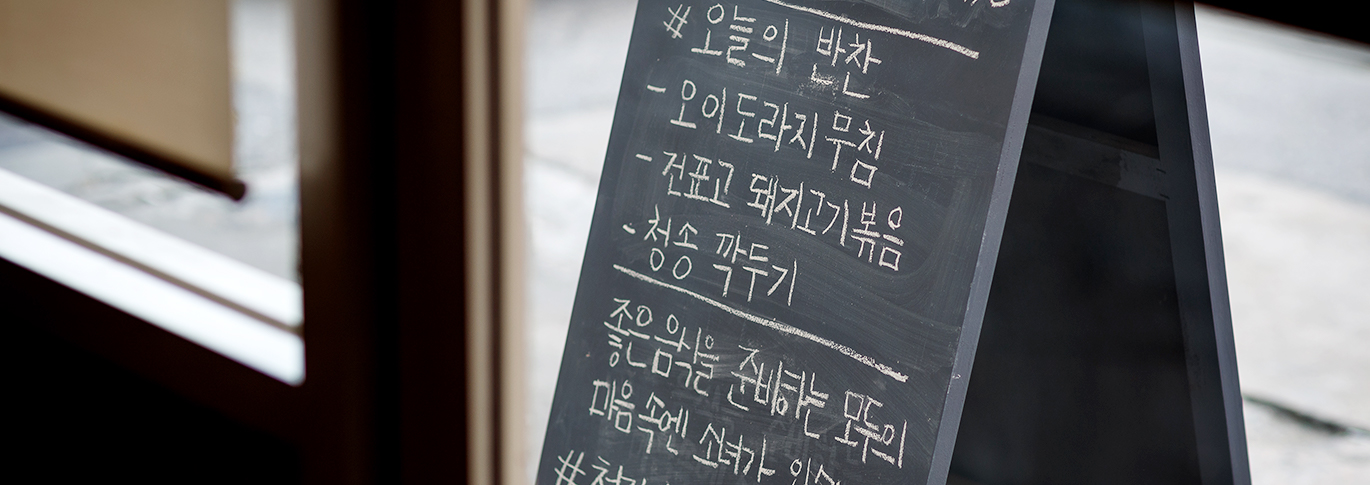 # 오늘의 반찬
- 오이도라지무침
- 전표고 돼지고기볶음
- 청송 깍두기
좋은음식을 준비하는 모두의
마음속엔 소녀가
#